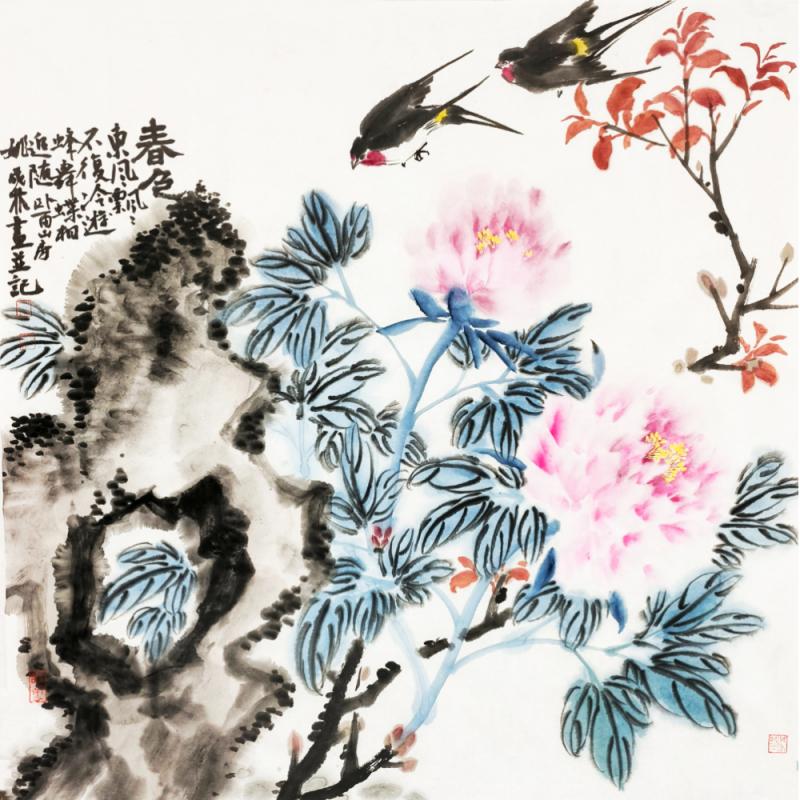 春色
東風飄飄
不復冷遊
蜂舞蝶相
追随 卧南山房
姚成林畫並記